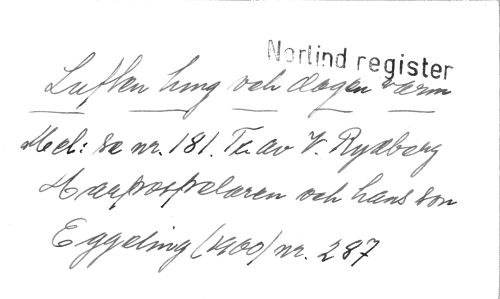 Norlind register
Luften ljung och dagen varm
Mel: se nr. 181. Tr. av V. Rydberg
Harpospelaren och hans son
Eggeling (1900) nr. 287